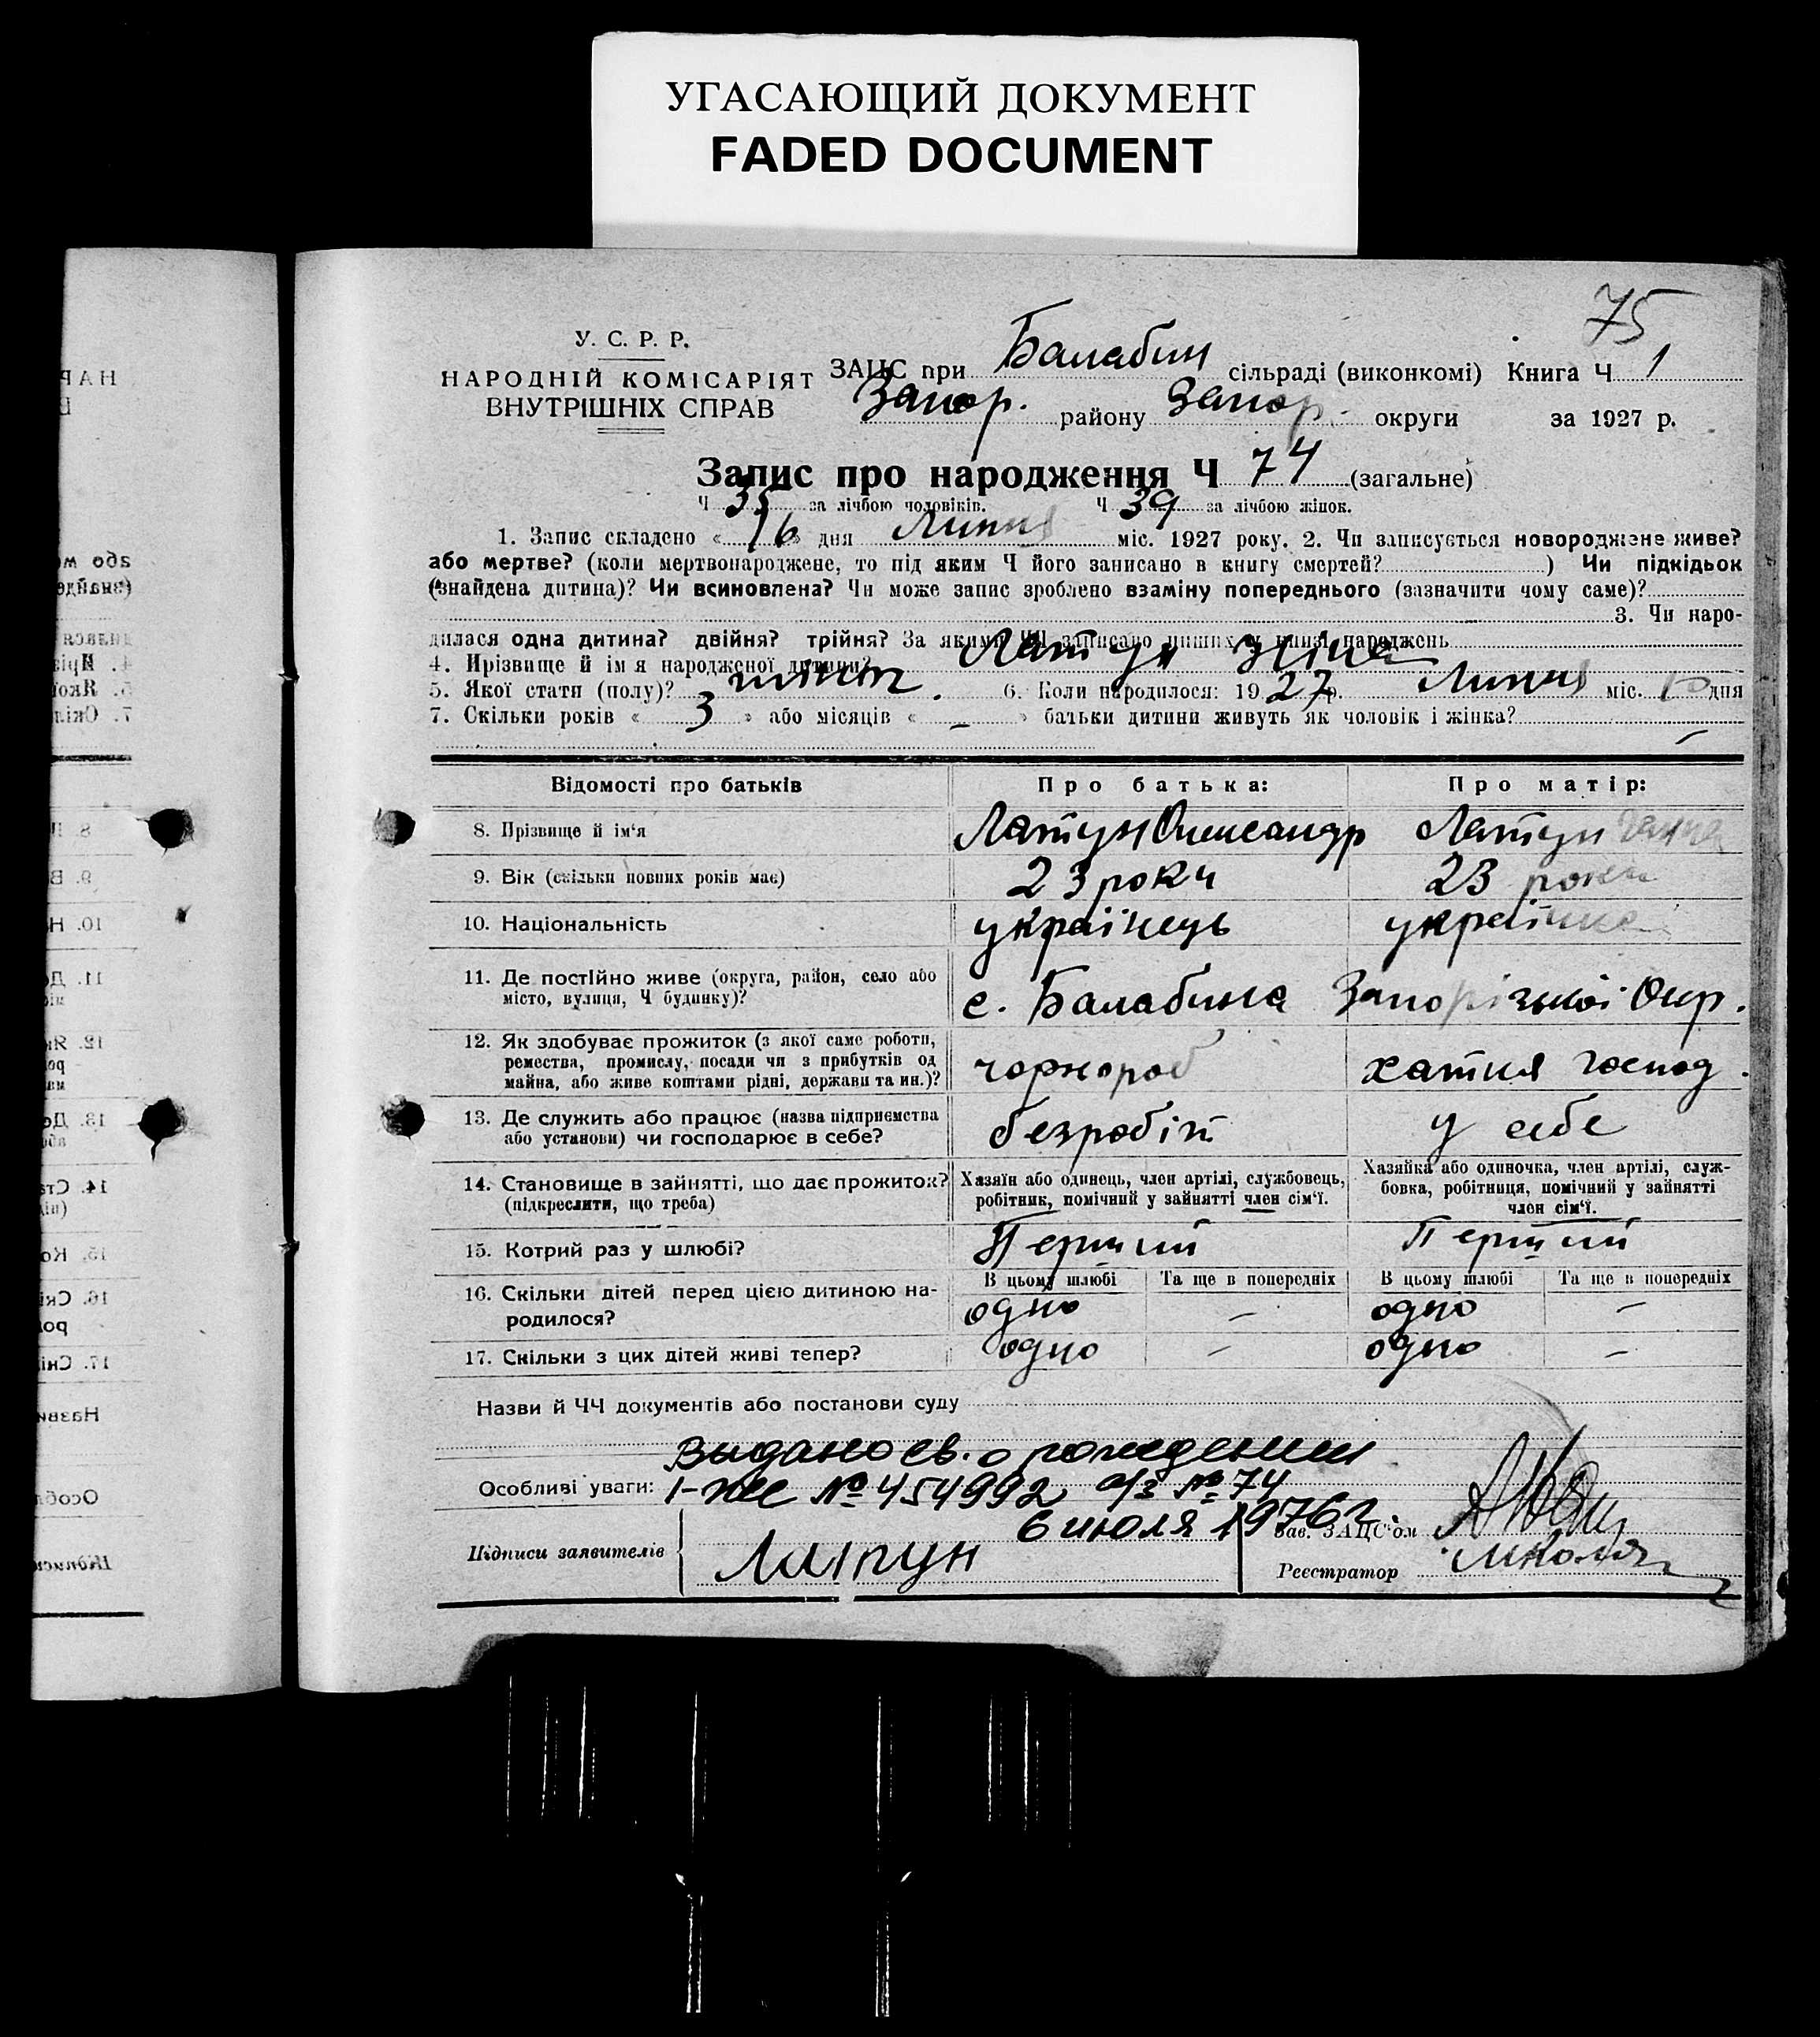 УГАСАЮЩИЙ ДОКУМЕНТ
FADED DOCUMENT
75
У. С. Р. Р.
НАРОДНІЙ КОМІСАРІЯТ
ВНУТРІШНІХ СПРАВ
ЗАЦС при Балабин сільраді (виконкомі) Книга Ч 1
Запор. району Запор. округи за 1927 р.
Запис про народження Ч 74 (загальне)
Ч 35 за лічбою чоловіків. Ч 39 за лічбою жінок.
1. Запис складено «16» дня Липня міс. 1927 року. 2. Чи записується новороджене живе?
або мертве? (коли мертвонароджене, то під яким Ч його записано в книгу смертей? ) Чи підкідьок
(знайдена дитина)? Чи всиновлена? Чи може запис зроблено взаміну попереднього (зазначити чому саме)?
3. Чи наро-
дилася одна дитина? двійня? трійня? За якими ЧЧ записано инших у книзі народжень
4. Прізвище й ім я народженої дитини? Латун Зіна
5. Якої стати (полу)? жіноч. 6. Коли народилося: 1927 р. Липня міс. дня
7. Скільки років « 3 » або місяців « – » батьки дитини живуть як чоловік і жінка?
–
Відомості про батьків Про батька: Про матір:
8. Прізвище й ім‘я Латун Олександр Латун Ганна
9. Вік (скільки повних років має) 23 роки 23 роки
10. Національність українець українка
11. Де постійно живе (округа, район, село або
місто, вулиця, Ч будинку)? с. Балабине Запорізької Окр.
12. Як здобуває прожиток (з якої саме роботи,
ремества, промислу, посади чи з прибутків од
майна, або живе коштами рідні, держави та ин.)? чорнороб хатня господ.
13. Де служить або працює (назва підприємства
або установи) чи господарює в себе? безробіт у себе
14. Становище в зайнятті, що дає прожиток?
(підкреслити, що треба)
Хазяїн або одинець, член артілі, службовець,
робітник, помічний у зайнятті член сім‘ї.
Хазяйка або одиночка, член артілі, служ-
бовка, робітниця, помічний у зайнятті
член сім‘ї.
15. Котрий раз у шлюбі? Перший Перший
В цьому шлюбі Та ще в попередніх В цьому шлюбі Та ще в попередніх
16. Скільки дітей перед цією дитиною на-
родилося? одно – одно –
17. Скільки з цих дітей живі тепер? одно – одно –
Назви й ЧЧ документів або постанови суду
Выдано св. о рождении
Особливі уваги: I-ЖС № 454992 а/з № 74
6 июля 1976 г.
Підписи заявителів Латун
Зав. ЗАЦС‘ом
Реєстратор